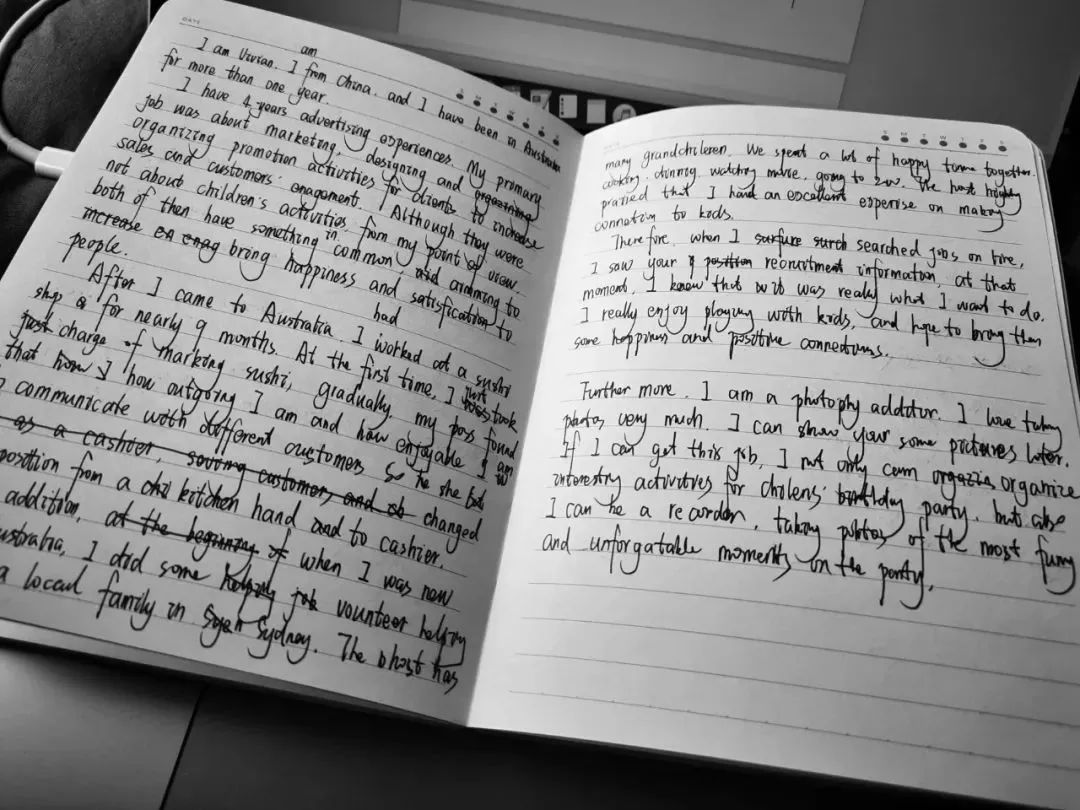 DATE
am
I am Vivian. I from China. and I have been in Australia
for more than one year.
I have 4 years advertising experiences. My primary
job was about marketing, designing and organizing
organizing promotion activities for clients to increase
sales and customers' engagement. Although they were
not about children's activities, from my point of view.
both of then have something in common, and aimming to
increase en enag bring happiness and satisfication to
people.
had
After I came to Australia. I worked at a sushi
shop a for nearly 9 months. At the first time, I just was took
just charge of marking sushi, gradually, my poss found
that how I how outgoing I am and how enjoyable I am
communicate with different customers so he she
as a cashier, serving customers, and ob changed
position from a chi kitchen hand and to cashier.
addition, at the beginning of when I was new
Australia, I did some helping job vounteer helping
a local family in Sydney. The host has
many grandchileren. We spent a lot of happy time together.
cooking, dinning, watching movie, going to zoo. The host highly
praised that I hand an excellent experise on making
connection to kids.
Therefore, when I surfure surch searched jobs on hire,
I saw your position recruitment information, at that
moment, I know that it was really what I want to do.
I really enjoy playing with kids, and hope to bring then
some happiness and positive connections.
Further more, I am a photophy addictor. I love taking
photos very much. I can show your some pictures later.
If I can get this job, I not only can organize
interestry activities for cholens' birthday party, but also
I can be a recorder, taking photos of the most funny
and unforgatable moments on the party.